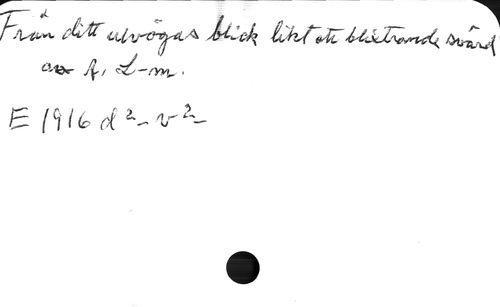 Från ditt ulvögas blick likt ett blixtrande svärd
av A. L-m.
E 1916 d2- v2-